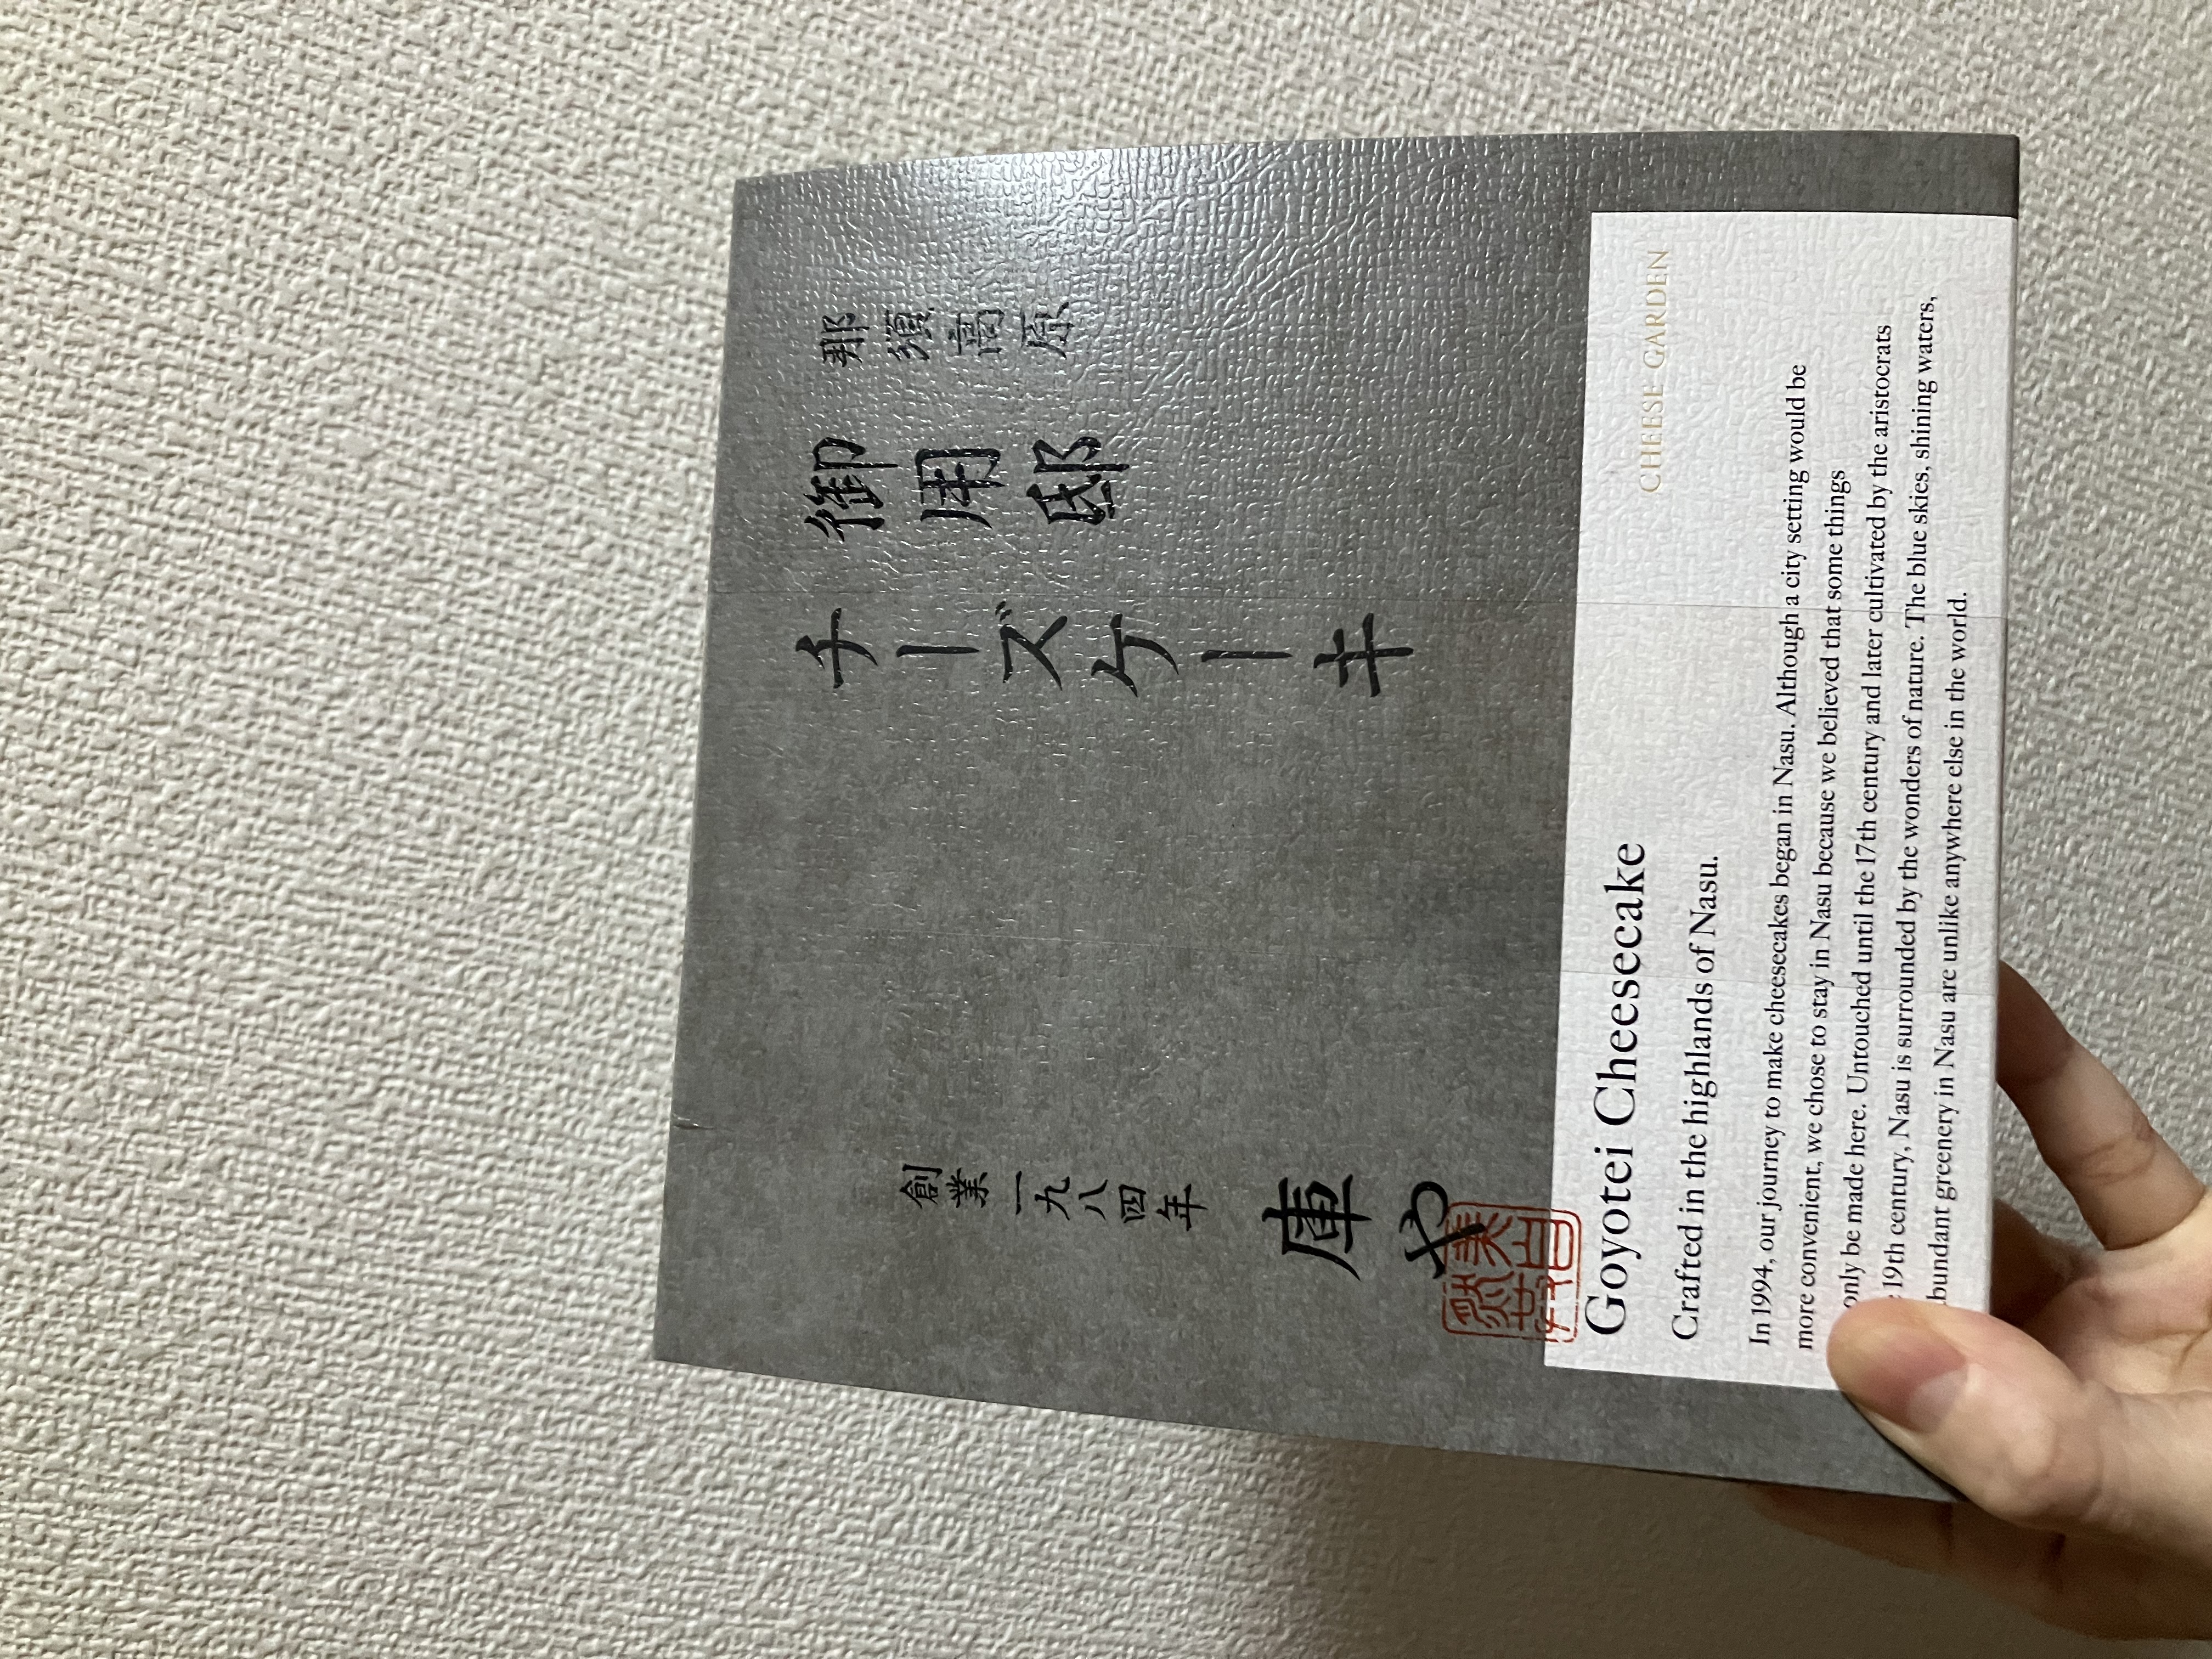 那須高原
御用邸
チーズケーキ
創業一九八四年
庫や
CHEESE GARDEN
Goyotei Cheesecake
Crafted in the highlands of Nasu.
In 1994, our journey to make cheesecakes began in Nasu. Although a city setting would be
more convenient, we chose to stay in Nasu because we believed that some things
only be made here. Untouched until the 17th century and later cultivated by the aristocrats
19th century, Nasu is surrounded by the wonders of nature. The blue skies, shining waters,
bundant greenery in Nasu are unlike anywhere else in the world.